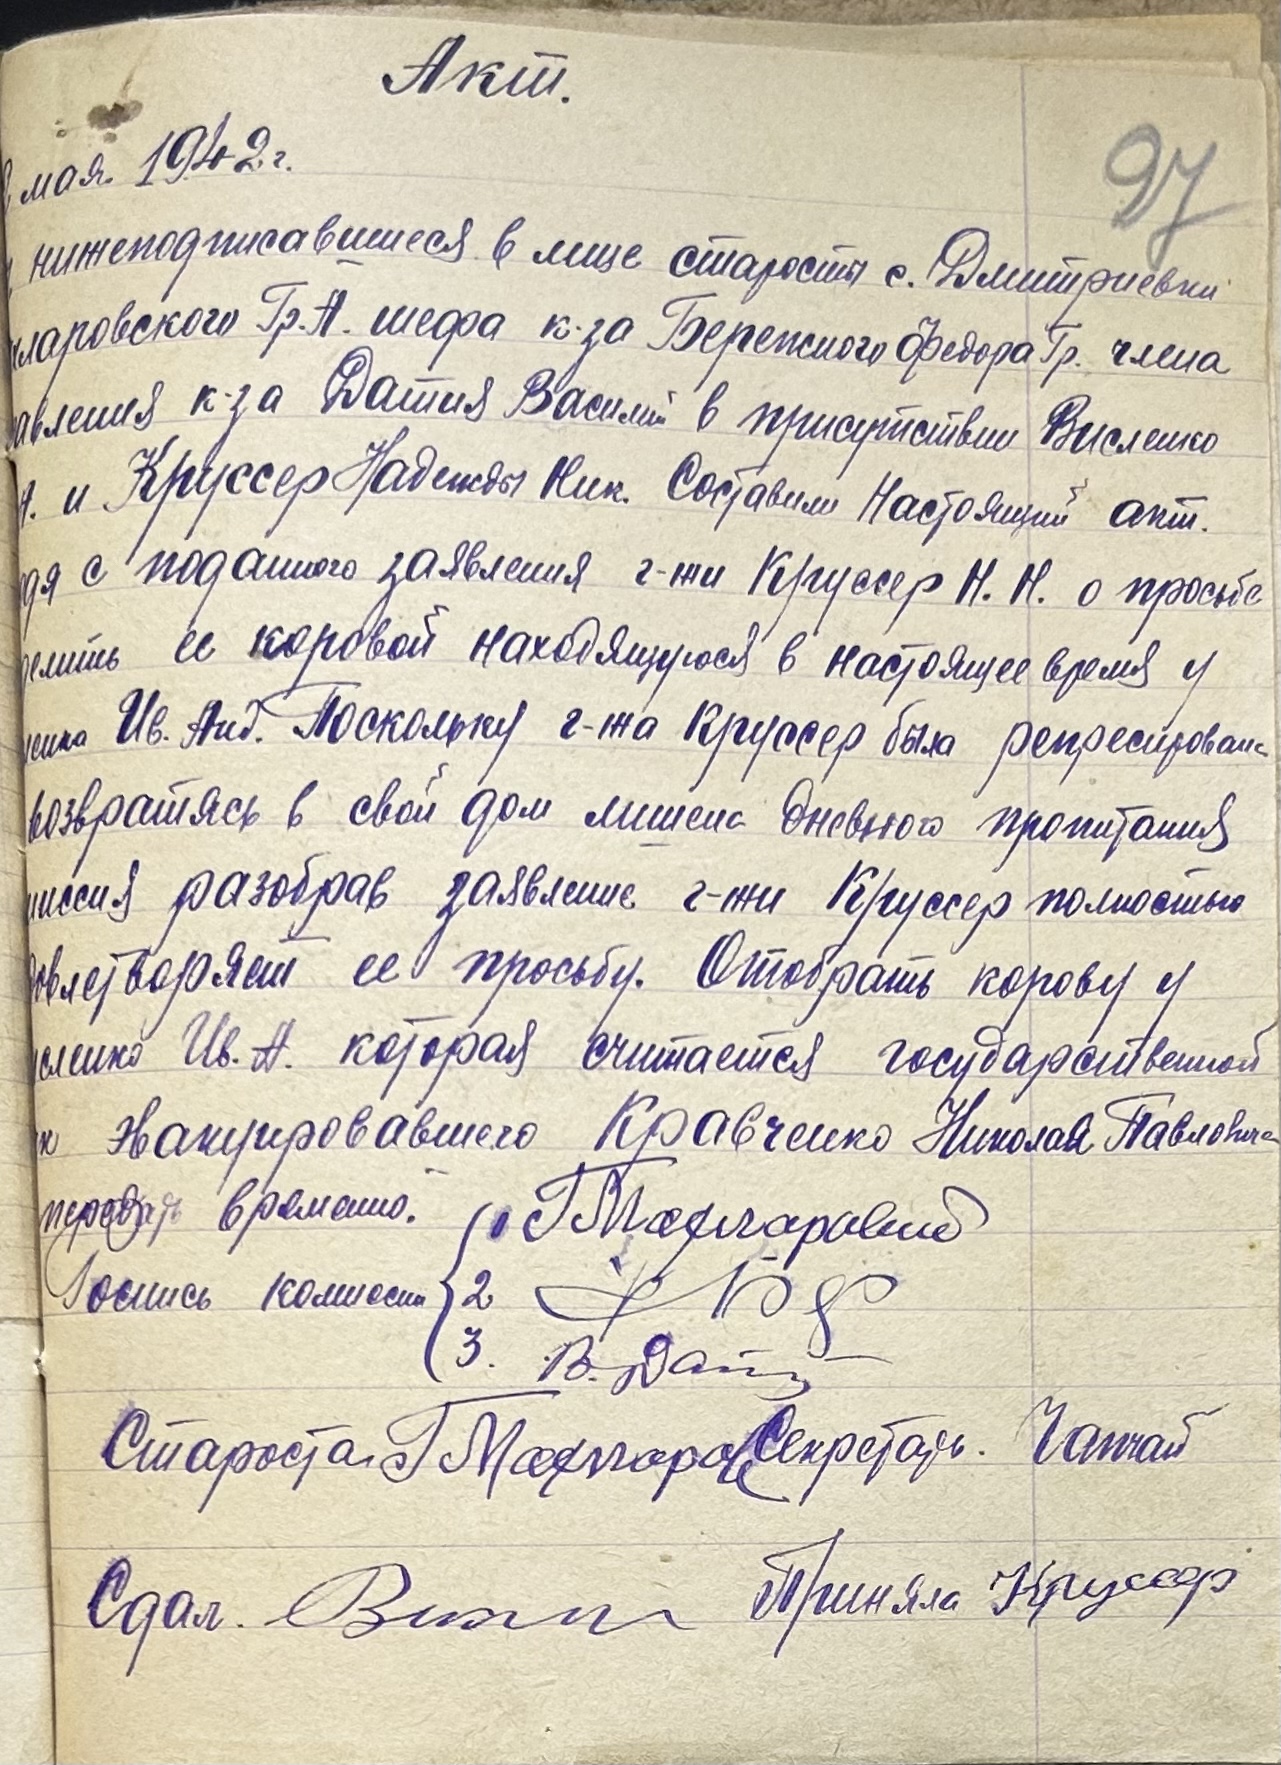 Акт.
97
мая 1942 г.
нижеподписавшиеся в лице старосты с. Дмитриевки
хларовского Гр. А. шефа к-за Бережного Федора Гр. члена
авления к-за Датия Василий в присутствии Висленко
А. и Круссер Надежды Ник. Составили Настоящий акт.
одя с поданного заявления г-жи Круссер Н. Н. о просьбе
делить ее коровой находящуюся в настоящее время у
сленко Ив. Анд. Поскольку г-жа Круссер была репресирована
возвратясь в свой дом лишена дневного пропитания
миссия разобрав заявление г-жи Круссер полностью
довлетворяет ее просьбу. Отобрать корову у
сленко Ив. А. которая считается государственной
как эвакуировавшего Кравченко Николая Павловича
передать времено.
Роспись комиссии
1 ГМахларовский
2
3. В. Дати
Староста ГМахларов Секретарь.
Сдал. Приняла Круссер